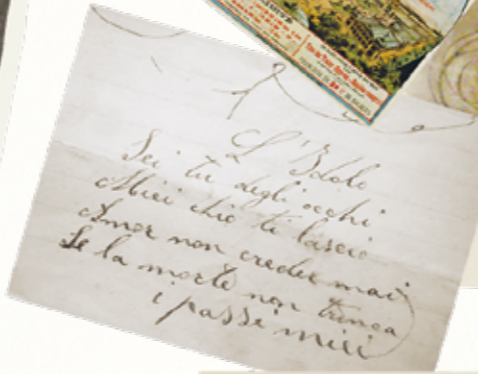 L'Idolo
Sei tu degli occhi
Miei chio ti lascio
Amor non creder mai
Se la morte non trunca
i passi miei